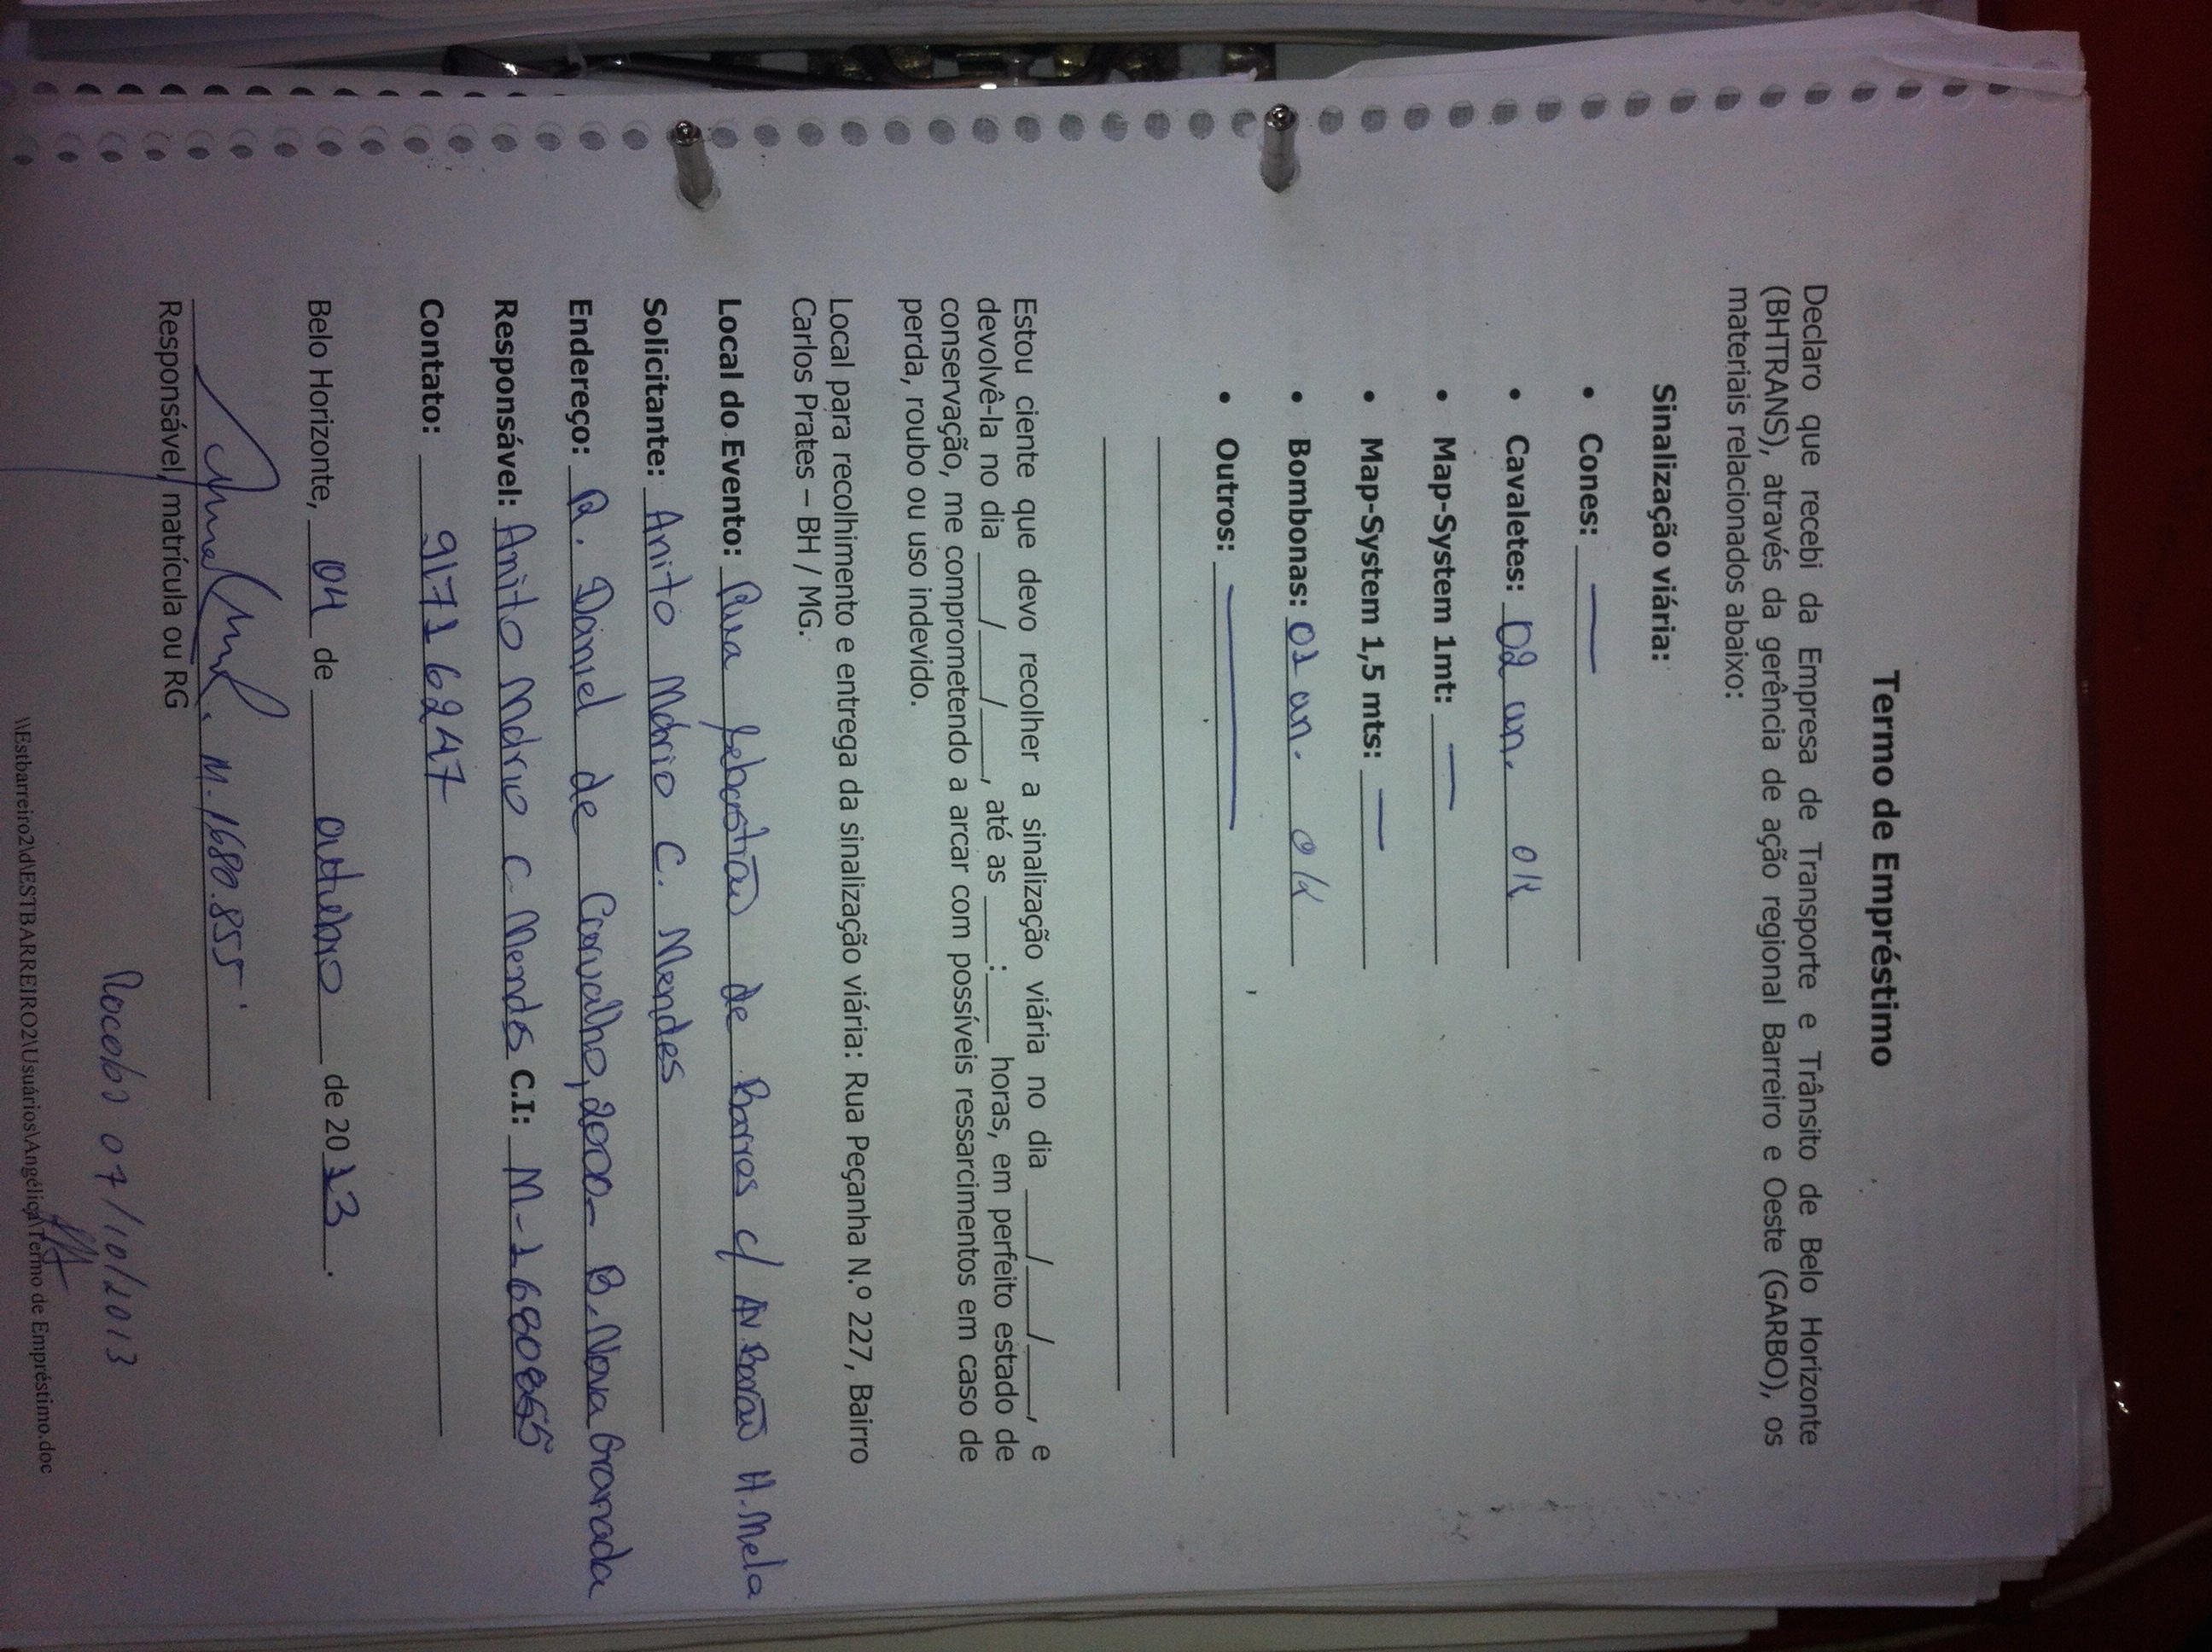 Termo de Empréstimo
Declaro que recebi da Empresa de Transporte e Trânsito de Belo Horizonte
(BHTRANS), através da gerência de ação regional Barreiro e Oeste (GARBO), os
materiais relacionados abaixo:
Sinalização viária:
• Cones: —
• Cavaletes: 02 un. OK
• Map-System 1mt: —
• Map-System 1,5 mts: —
• Bombonas: 01 un. OK
• Outros: —
Estou ciente que devo recolher a sinalização viária no dia ___/___/___, e
devolvê-la no dia ___/___/___, até as ___:___ horas, em perfeito estado de
conservação, me comprometendo a arcar com possíveis ressarcimentos em caso de
perda, roubo ou uso indevido.
Local para recolhimento e entrega da sinalização viária: Rua Peçanha N.º 227, Bairro
Carlos Prates – BH / MG.
Local do Evento: Rua Sebastião de Barros c/ AV. Barão H. Melo
Solicitante: Anito Mário C. Mendes
Endereço: R. Daniel de Carvalho, 2000 - B. Nova Granada
Responsável: Anito Mário C. Mendes C.I: M-1680855
Contato: 91716247
Belo Horizonte, 04 de outubro de 2013.
M. 1680.855
Responsável, matrícula ou RG
07/10/2013
\\Estbarreiro2\d\ESTBARREIRO2\Usuários\Angélica\Termo de Empréstimo.doc